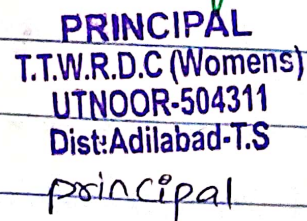 PRINCIPAL
T.T.W.R.D.C (Womens)
UTNOOR-504311
Dist:Adilabad-T.S
principal